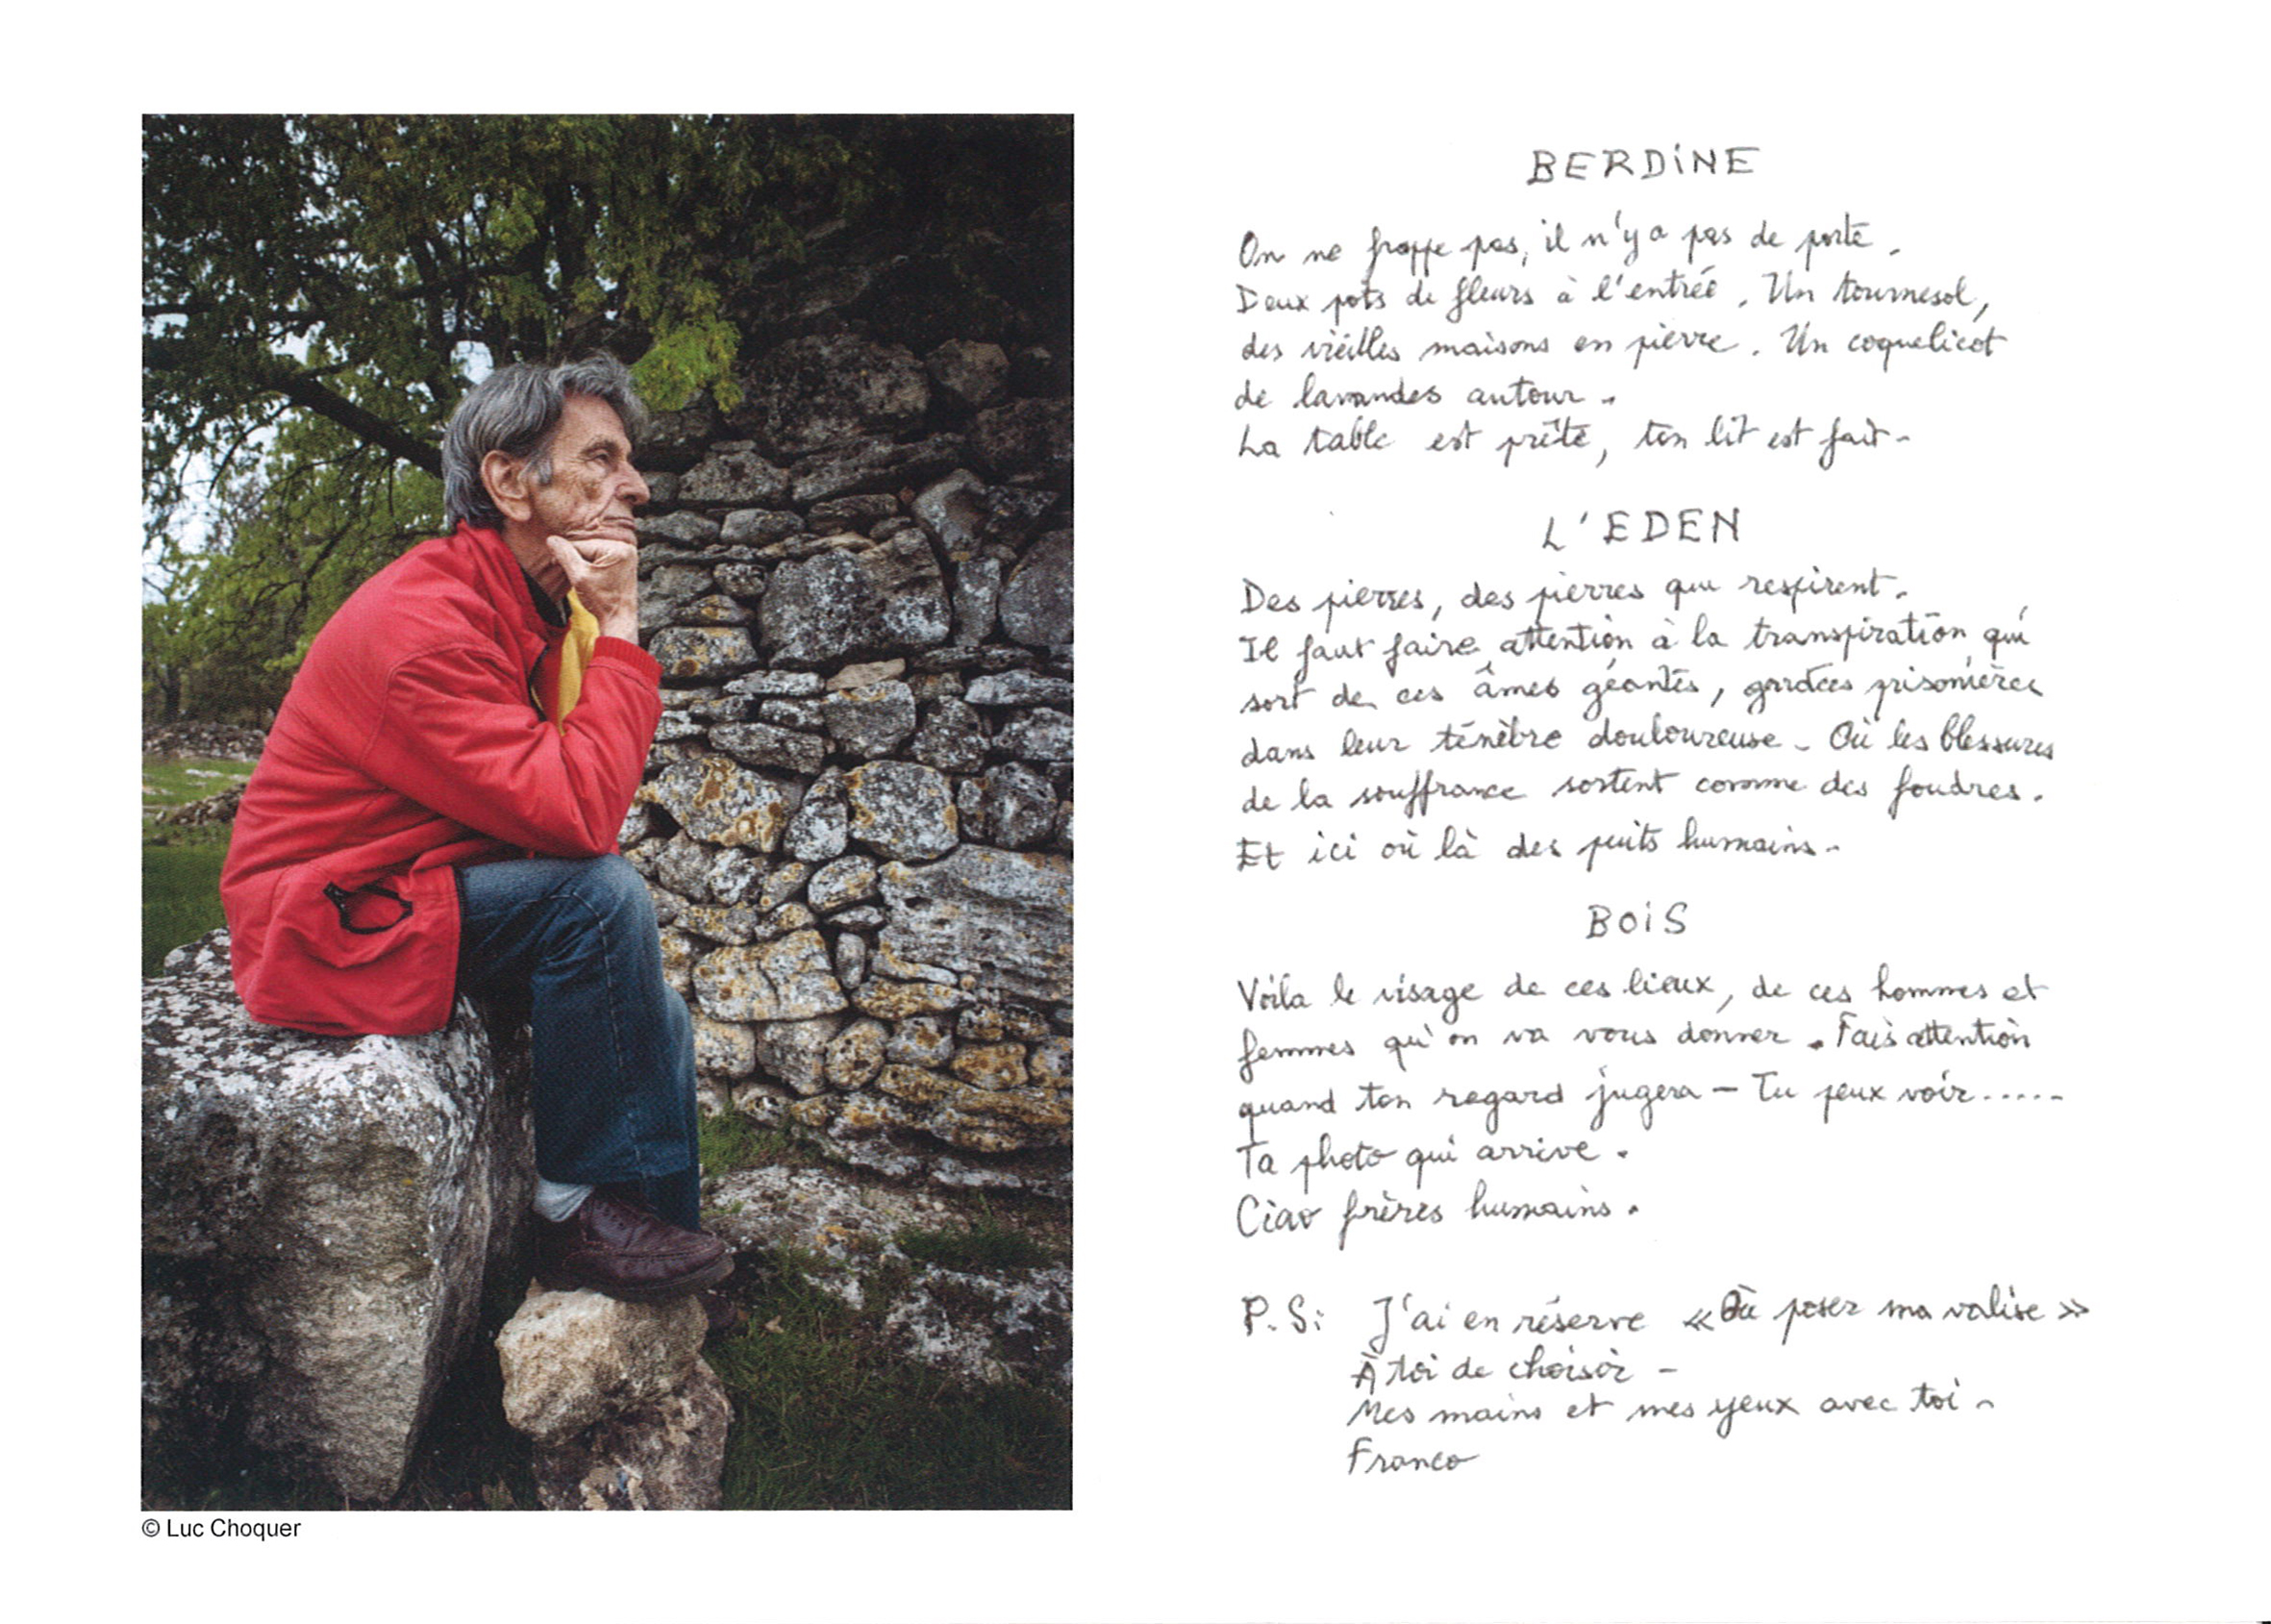 BERDiNE
On ne frappe pas, il n'y a pas de porte.
Deux pots de fleurs à l'entrée. Un tournesol,
des vieilles maisons en pierre. Un coquelicot
de lavandes autour.
La table est prête, ton lit est fait.
L'EDEN
Des pierres, des pierres qui respirent.
Il faut faire attention à la transpiration qui
sort de ces âmes géantes, gardées prisonières
dans leur ténèbre douloureuse. Où les blessures
de la souffrance sortent comme des foudres.
Et ici où là des puits humains.
BOiS
Voila le visage de ces lieux, de ces hommes et
femmes qu'on va vous donner. Fais attention
quand ton regard jugera – Tu peux voir.....
Ta photo qui arrive.
Ciao frères humains.
P.S: J'ai en réserve «Où poser ma valise»
À toi de choisir –
Mes mains et mes yeux avec toi –
Franco
© Luc Choquer